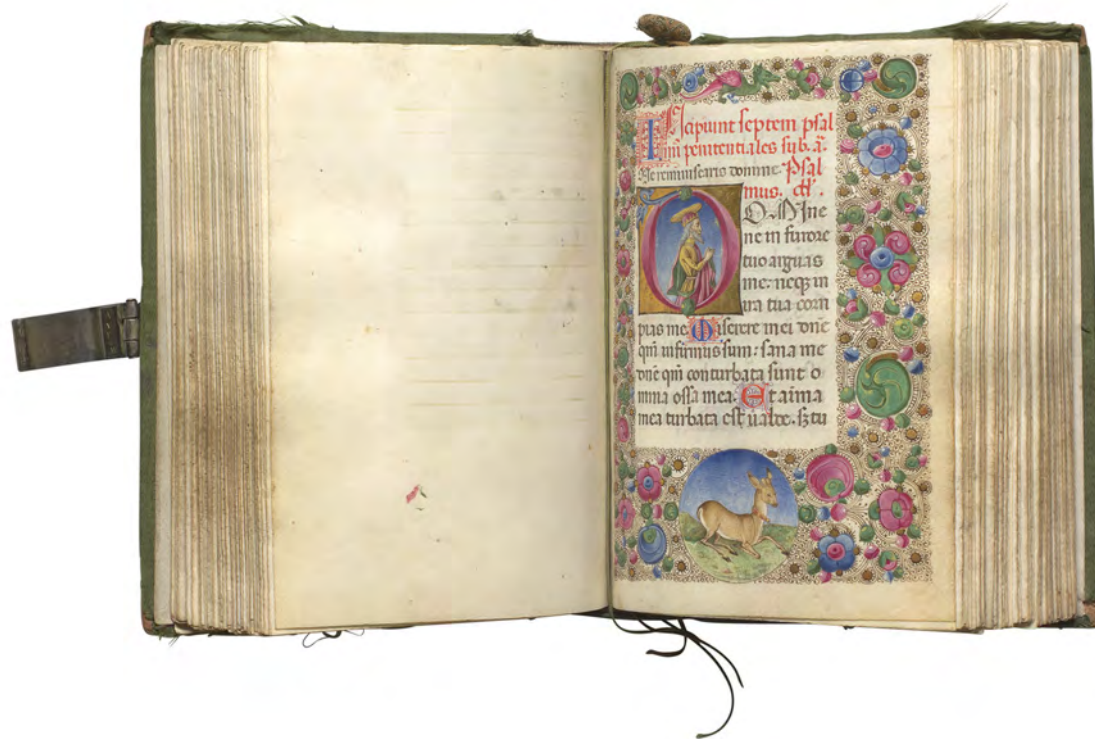 Incipiunt septem psal
mi penitentiales sub. a.
Ne reminiscaris domine. Psal
mus.
DOMIne
ne in furore
tuo arguas
me: neqꝫ in
ira tua corri
pias me. Miserere mei dne
qm̄ infirmus sum: sana me
dn̄e qm̄ conturbata sunt o
mnia ossa mea. Et aīma
mea turbata est ualde. sꝫ tu